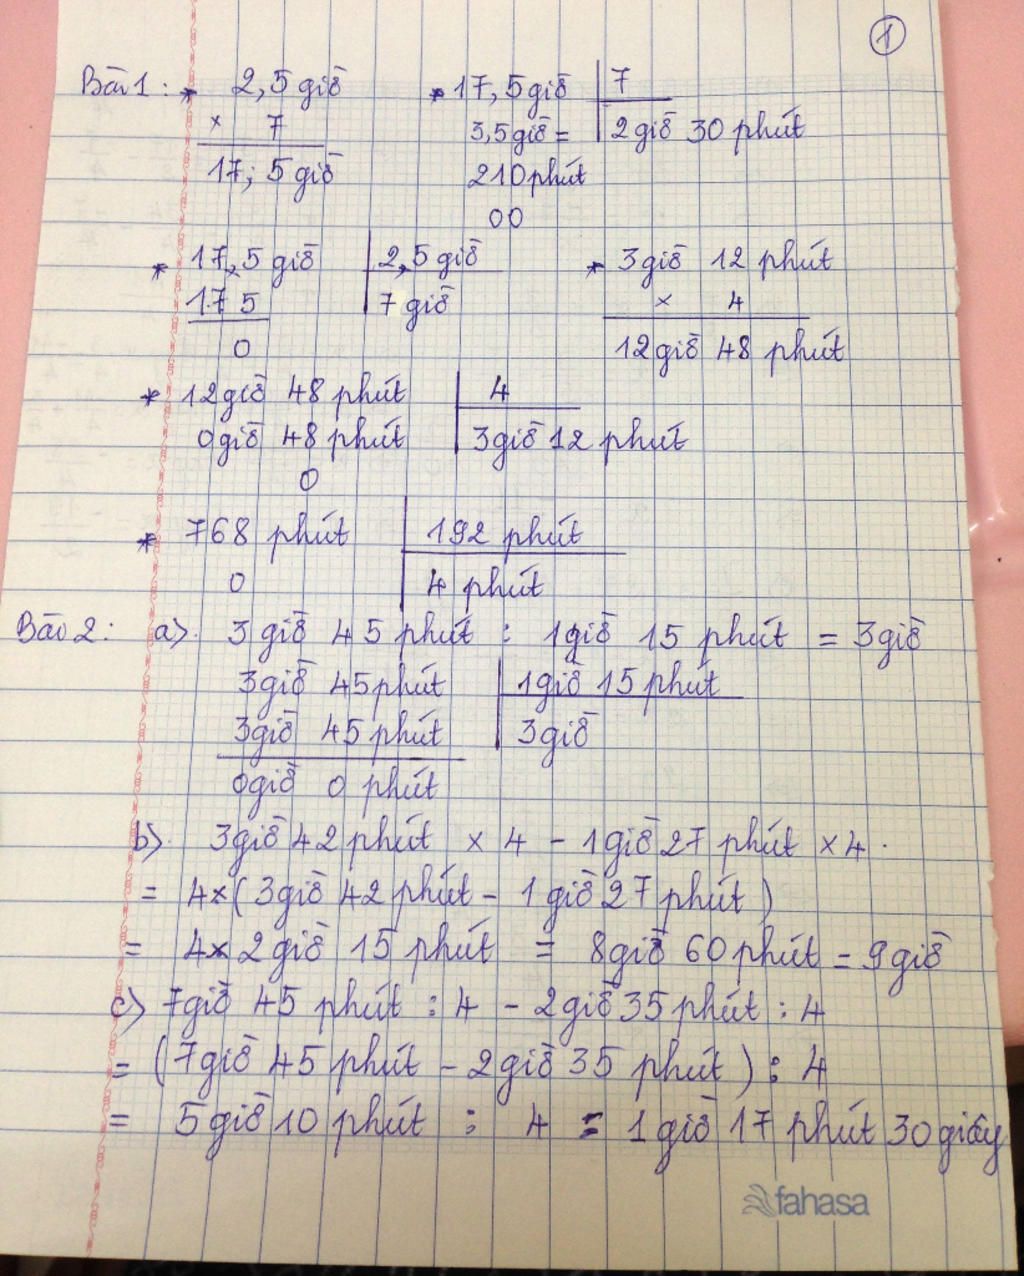 1
Bài 1: * 2,5 giờ * 17,5 giờ 7
× 7 3,5 giờ = 2 giờ 30 phút
17,5 giờ 210 phút
00
* 17,5 giờ 2,5 giờ * 3 giờ 12 phút
17 5 7 giờ × 4
0 12 giờ 48 phút
* 12 giờ 48 phút 4
0 giờ 48 phút 3 giờ 12 phút
0
* 768 phút 192 phút
0 4 phút
Bài 2: a) 3 giờ 45 phút : 1 giờ 15 phút = 3 giờ
3 giờ 45 phút 1 giờ 15 phút
3 giờ 45 phút 3 giờ
0 giờ 0 phút
b) 3 giờ 42 phút × 4 - 1 giờ 27 phút × 4.
= 4 × ( 3 giờ 42 phút - 1 giờ 27 phút )
= 4 × 2 giờ 15 phút = 8 giờ 60 phút = 9 giờ
c) 7 giờ 45 phút : 4 - 2 giờ 35 phút : 4
= ( 7 giờ 45 phút - 2 giờ 35 phút ) : 4
= 5 giờ 10 phút : 4 = 1 giờ 17 phút 30 giây
fahasa